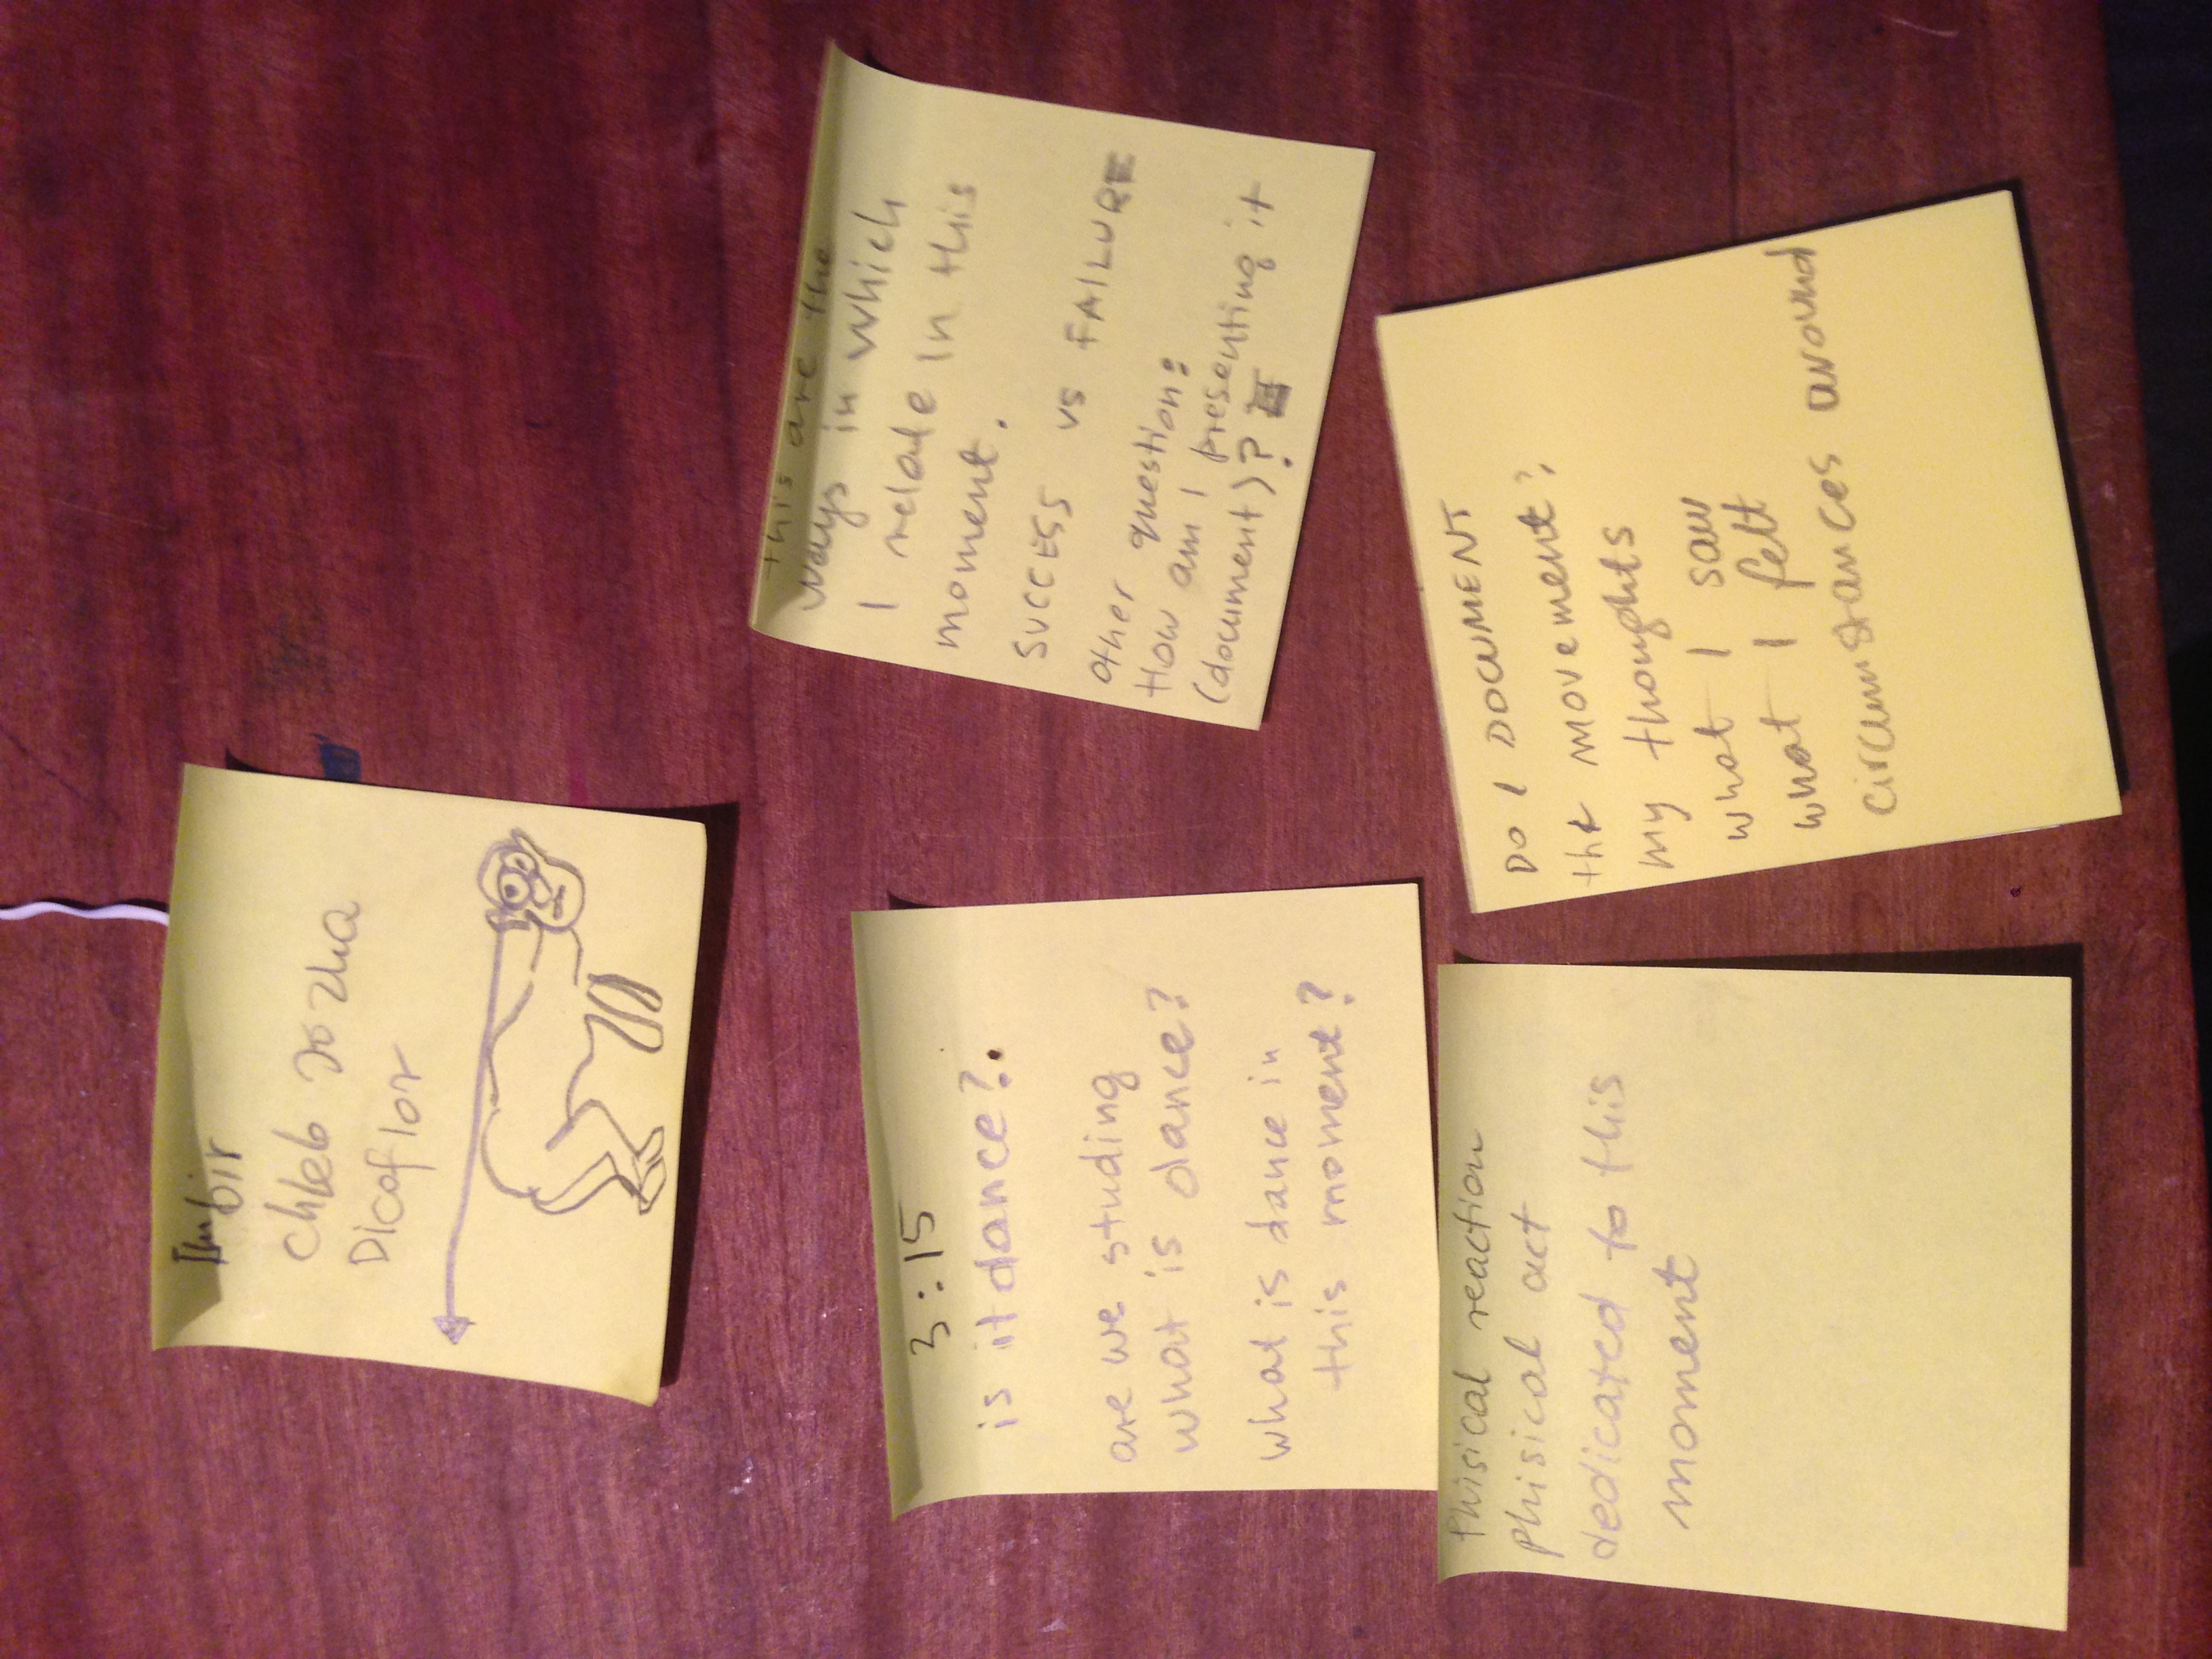 Imbir
chleb żozha
Dicoflor
3:15
is it dance?.
are we studing
what is dance?
what is dance in
this moment?
Phisical reaction
phisical act
dedicated to this
moment
this are the
ways in which
I relate in this
moment.
SUCCESS vs FAILURE
other question:
How am I presenting it
(document)?
DO I DOCUMENT
the movement?,
my thoughts
what I saw
what I felt
circumstances around